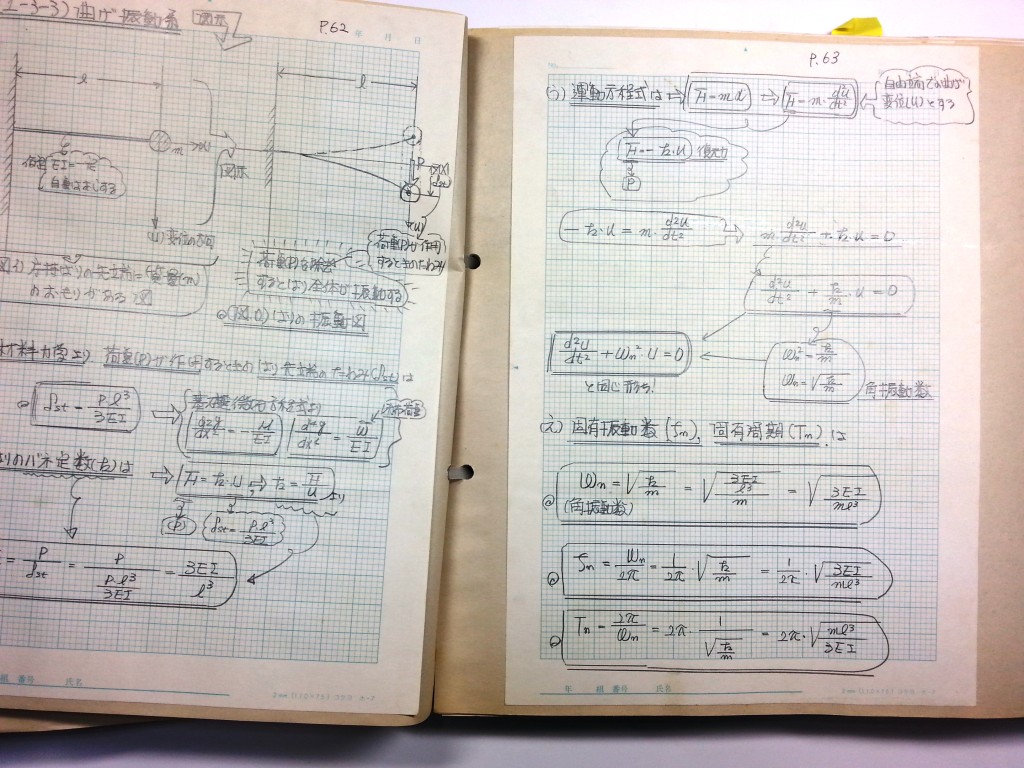 1-3-3) 曲げ振動系
P.62
年 月 日
l
l
m
自重はなしとする
図示
P
(δst)
(U)
(U) 変位の方向
荷重(P)が作用
するときのたわみ
荷重(P)を除去
するとはり全体が振動する
の先端に質量(m)
のおもりがある図
はりの振動図
材料力学より 荷重(P)が作用するときのはり先端のたわみ(δst)は
δst = Pl³/3EI
基礎微分方程式より
d²y/dx² = -M/EI
= ω/EI
分布荷重
りのバネ定数(k)は
F = k・U
k = F/U より
(P)
δst = Pl³/3EI
= P/δst = P/(Pl³/3EI) = 3EI/l³
組 番号 氏名
P.63
う) 運動方程式は ⇒ F = mα ⇒ F = m・d²u/dt²
自由端での曲げ
変位(U)とする
F = -k・U) 復元力
P
-k・U = m・d²u/dt² ⇒ m・d²u/dt² + k・U = 0
d²u/dt² + k/m・U = 0
d²u/dt² + ωn²・U = 0
と同じ形ゆえ!
ωn² = k/m
ωn = √(k/m)
角振動数
え) 固有振動数(fn), 固有周期(Tn)は
ωn = √(k/m) = √((3EI/l³)/m) = √(3EI/ml³)
(角振動数)
fn = ωn/2π = 1/2π・√(k/m) = 1/2π・√(3EI/ml³)
Tn = 2π/ωn = 2π・1/√(k/m) = 2π・√(ml³/3EI)
年 組 番号 氏名